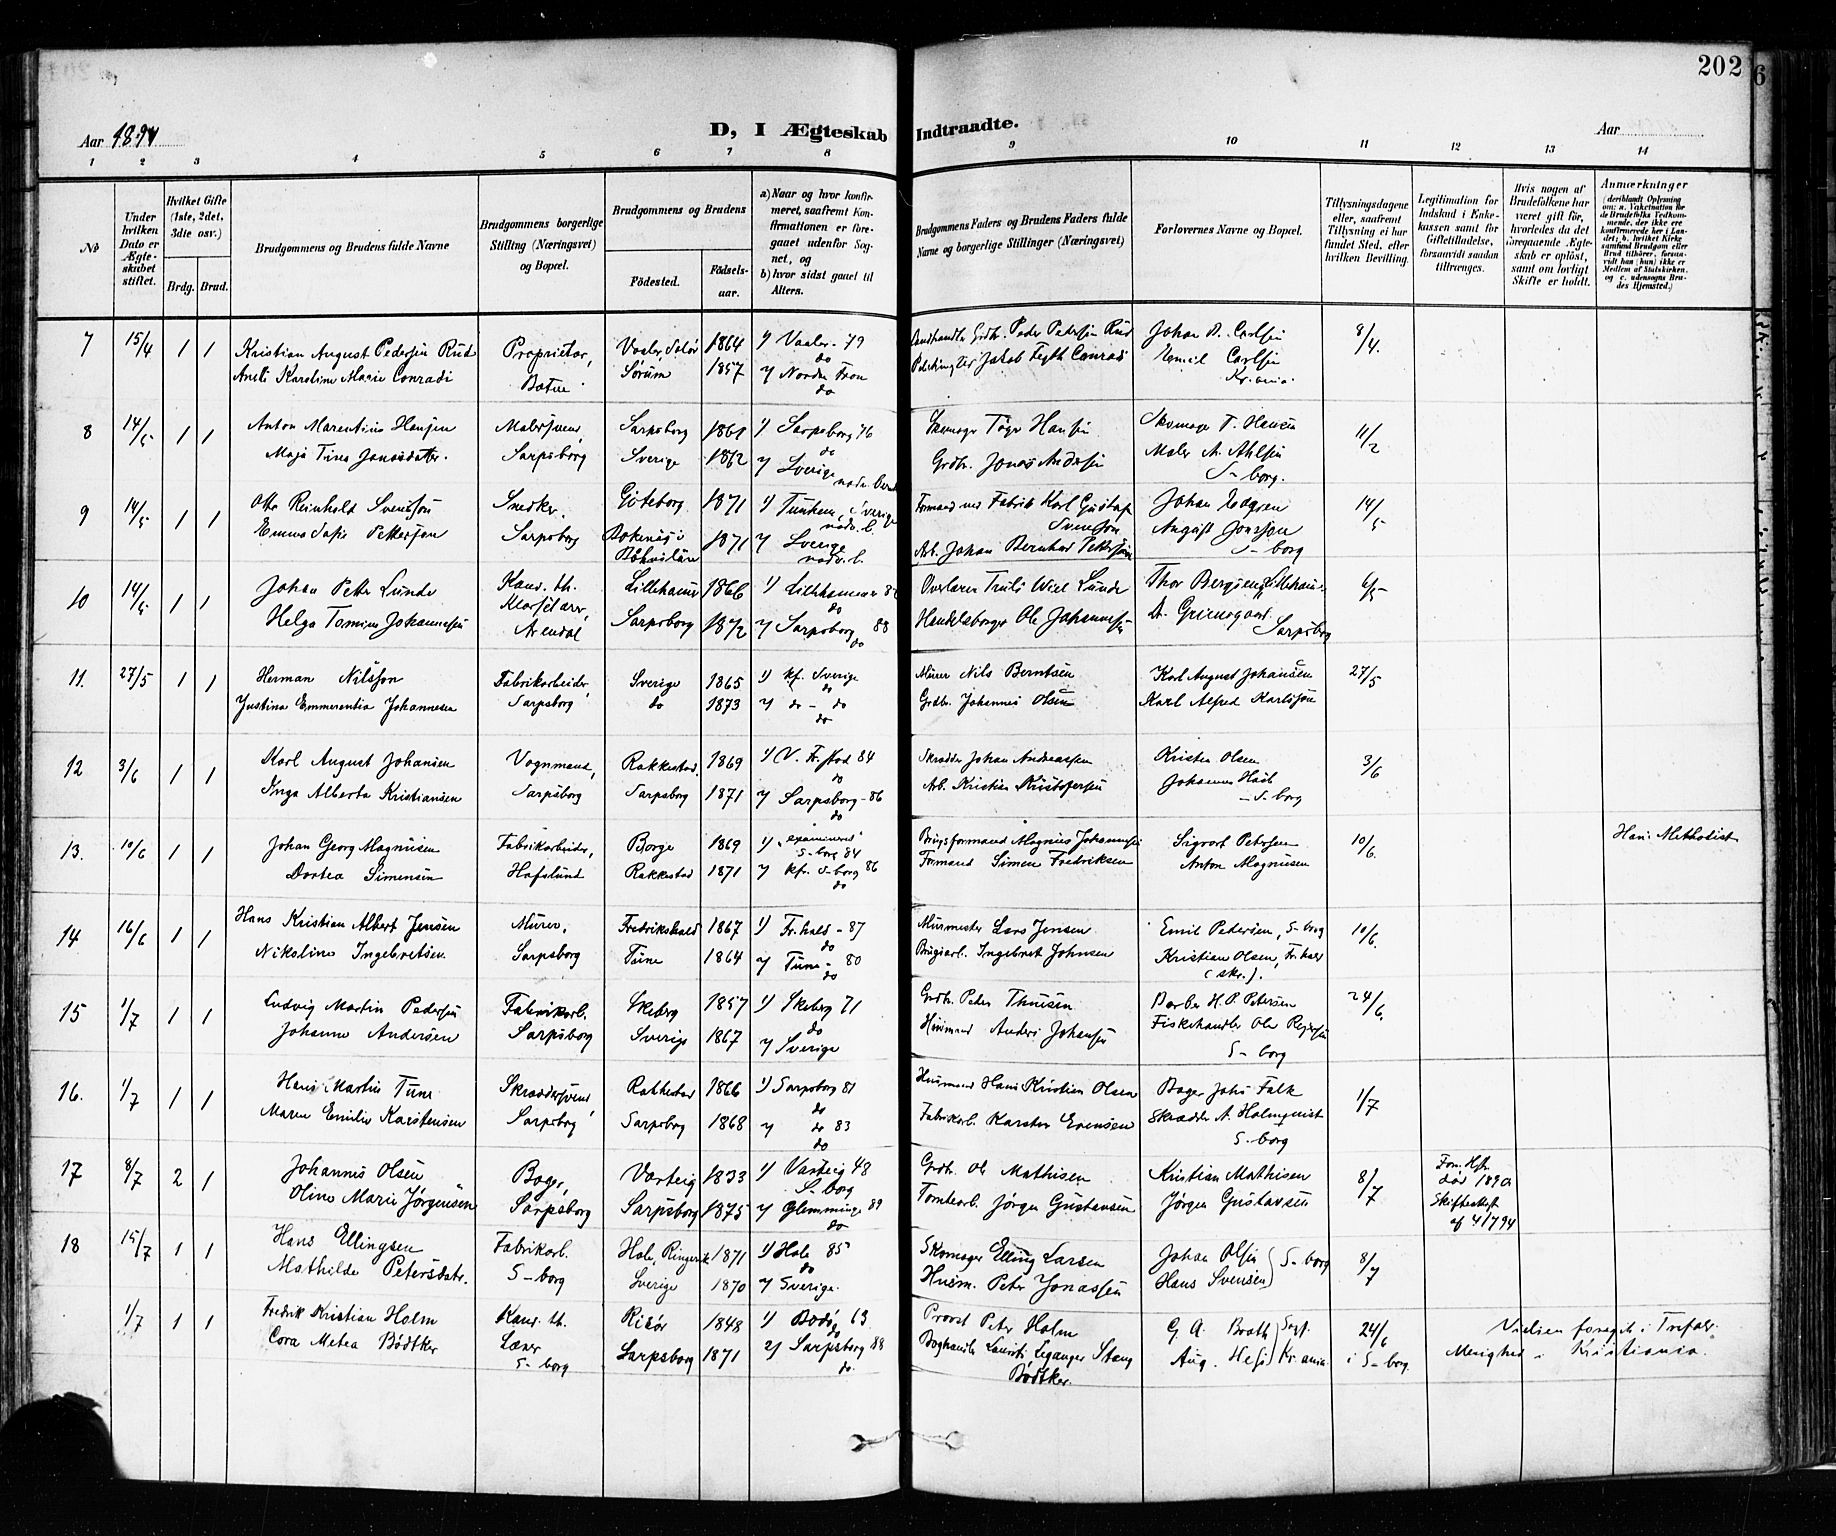 202
6
Aar 1894
D, I Ægteskab Indtraadte.
Aar
1 2 3 4 5 6 7 8 9 10 11 12 13 14
No
Under hvilken Dato er Ægte-skabet stiftet.
Hvilket Gifte (1ste, 2det, 3dte osv.)
Brdg. Brud.
Brudgommens og Brudens fulde Navne
Brudgommens borgerlige Stilling (Næringsvei) og Bopæl.
Brudgommens og Brudens
Fødested.
Fødsels-aar.
a) Naar og hvor konfir-meret, saafremt Kon-firmationen er fore-gaaet udenfor Sog-net, og
b) hvor sidst gaaet til Alters.
Brudgommens Faders og Brudens Faders fulde Navne og borgerlige Stillinger (Næringsvei)
Forlovernes Navne og Bopæl.
Tillysningsdagene eller, saafremt Tillysning ei har fundet Sted, efter hvilken Bevilling.
Legitimation for Indskud i Enke-kassen samt for Giftetilladelse, forsaavidt saadan tiltrænges.
Hvis nogen af Brudefolkene har været gift før, hvorledes da det foregaaende Ægte-skab er opløst, samt om lovligt Skifte er holdt.
Anmærkninger (deriblandt Oplysning om: a. Vakcination for de Brudefolks Vedkom-mende, der ikke ere konfirmerede her i Lan-det; b. hvilket Kirke-samfund Brudgom eller Brud tilhører, forsaa-vidt han (hun) ikke er Medlem af Statskirken, og c. udensogns Bru-des Hjemsted.)
7 15/4 1 1 Kristian August Pedersen Rud Proprietør, Vaaler, Solør 1864 1) Vaaler 79 Gdbr. Peder Pedersen Rud Johan A. Carlsen 8/4.
do
Karoline Marie Conradi Sørum 1857 2) Nordre Fron Jakob Conradi Emil Carlsen
do Kr.ania.
8 14/5 1 1 Anton Marentius Hansen Malersvend, Sarpsborg 1861 1) Sarpsborg 76 Skomager Hansen Skomager T. Hansen 11/2
do
Maja Tina Jonasdatter. Sarpsborg Sverige 1862 2) Sverige Grdbr. Jonas Andersen Maler A. Ahlsen
S-borg.
9 14/5 1 1 Otto Reinhold Svensson Snedker, Göteborg 1871 1) Sverige Formand ved Fabrik Karl Gustaf Svensson Johan 14/5
Emma Sofie Pettersen Sarpsborg Bokenäs i Bohuslän 1871 2) Sverige Arb. Johan Bernhard Pettersen August Jonsson
S-borg
10 14/5 1 1 Johan Petter Lunde Kand. th. Lillehamer 1866 1) Lillehamer Overlærer Truls Wiel Lunde Thor Bergseng, Lilleham: 6/5
do
Helga Tomine Johannessen Arendal Sarpsborg 1872 2) Sarpsborg 88 Handelsborger Ole Johannessen
do Sarpsborg
11. 27/5 1 1 Herman Nilsson Fabrikarbeider, Sverige 1865 1) kf. Sverige Murer Nils Berntsen Karl August Johansen 27/5
do
Justina Emmerentia Johannesen Sarpsborg do 1873 2) do - do Grdbr. Johannes Olsen Karl Alfred Karlsson
do
12 3/6 1 1 Karl August Johansen Vognmand, Rakkestad 1869 1) V. Fr.stad 84 Skrædder Johan Andreassen Kristen Olsen 3/6
do
Inga Alberta Kristiansen Sarpsborg Sarpsborg 1871 2) Sarpsborg - 86 Arb. Kristian Kristofersen Johannes
do S-borg
13. 10/6 1 1 Johan Georg Magnusen Fabrikarbeider, Borge 1869 1) "examineret" S-borg 84 Brugsformand Magnus Johannessen Sigvart Petersen 10/6. Han: Methodist
Dortea Simensen Hafslund Rakkestad 1871 2) kfr. S-borg 86 Formand Simen Fredriksen Anton Magnusen
do
14 16/6 1 1 Hans Kristian Albert Jensen Murer, Fredrikshald 1867 1) Fr.hald - 87 Murmester Lars Jensen Emil Pedersen, S-borg 10/6.
do
Nikoline Ingebretsen Sarpsborg Tune 1864 2) Tune - 80 Brugsarb. Ingebret Johnsen Kristian Olsen, Fr.hald
do (skr.).
15 1/7 1 1 Ludvig Martin Pedersen Fabrikarb. Skeberg 1857 1) Skeberg 71 Grdbr. Peder Thuesen Barber H. P. Petersen 24/6.
do
Johanne Andersen Sarpsborg Sverige 1867 2) Sverige Husmand Anders Johansen Fiskehandler Ole
S-borg
16. 1/7 1 1 Hans Martin Tune Skræddersvend, Rakkestad 1866 1) Sarpsborg 81 Husmand Hans Kristian Olsen Bager Johs Falk 1/7
do
Maren Emilie Karstensen Sarpsborg Sarpsborg 1868 2) do 83 Fabrikarb. Karsten Evensen Skrædder A. Holmquist
do S-borg
17 8/7 2 1 Johannes Olsen Bager, Varteig 1833 1) Varteig 48 Grdbr. Ole Mathisen Kristian Mathisen 8/7 død 1890
S-borg
Oline Marie Jørgensen Sarpsborg Sarpsborg 1875 2) Glemminge 89 Tomtearb. Jørgen Gustavsen Jørgen Gustavsen Skifteattest
do af 4/7 94
18 15/7 1 1 Hans Ellingsen Fabrikarb. Hole, Ringerik 1871 1) Hole 85 Skomager Elling Larsen Johan Olsen S-borg 8/7
do
Mathilde Petersdatr. S-borg Sverige 1870 2) Sverige. Husm. Peter Jonassen Hans Svensen
1/7 1 1 Fredrik Kristian Holm Kand. th. Risør 1848 1) Bodø 63 Provst Peter Holm G. A. Brath Sogp. 24/6 Vielsen foregik i Trefol-
do
Cora Metea Bödtker Lærer Sarpsborg 1871 2) Sarpsborg 88 Boghandler Laurits Leganger Stang Aug. Kr.ania. i S-borg. Menighed i Kristiania.
S-borg do. Bödtker.